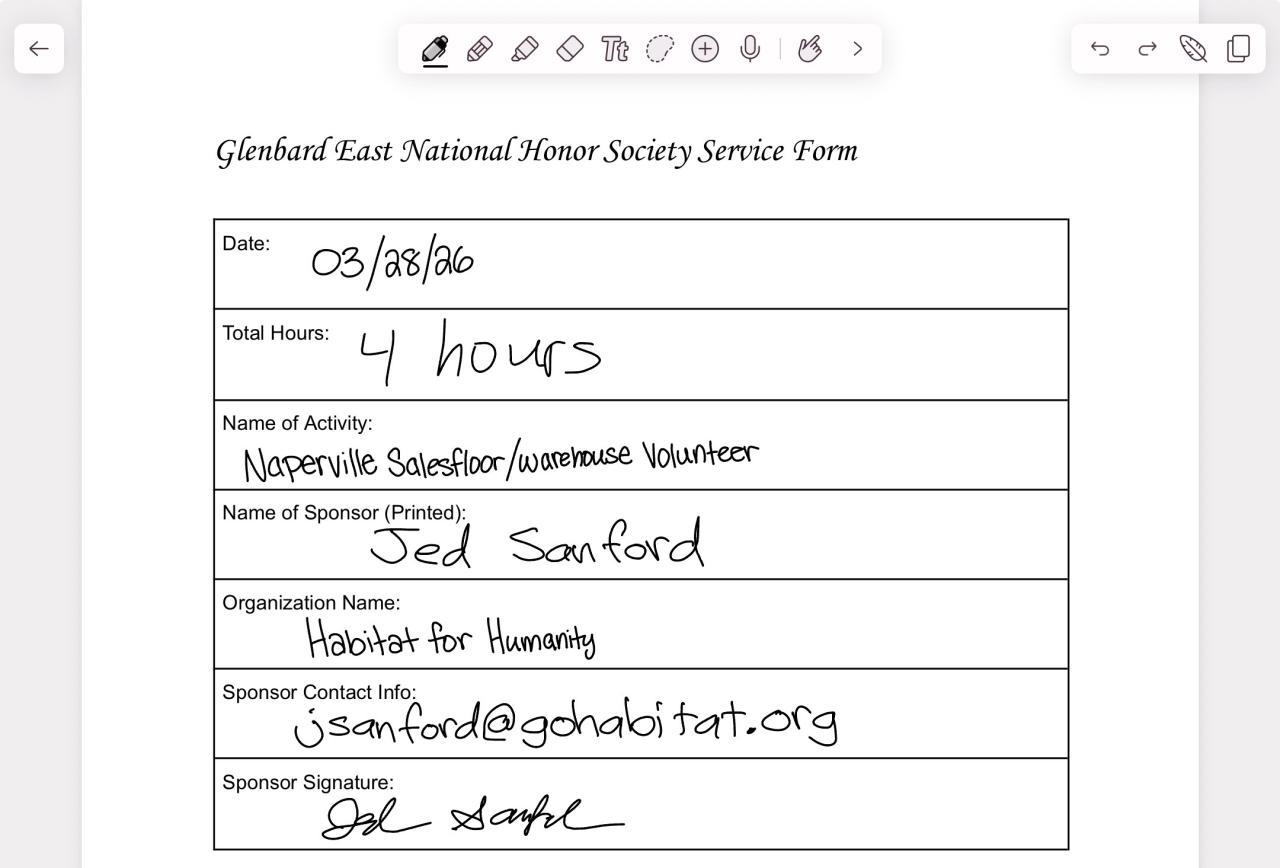 Tt
Glenbard East National Honor Society Service Form
Date: 03/28/26
Total Hours: 4 hours
Name of Activity:
Naperville Salesfloor/warehouse Volunteer
Name of Sponsor (Printed):
Jed Sanford
Organization Name:
Habitat for Humanity
Sponsor Contact Info:
jsanford@gohabitat.org
Sponsor Signature:
Jed Sanford